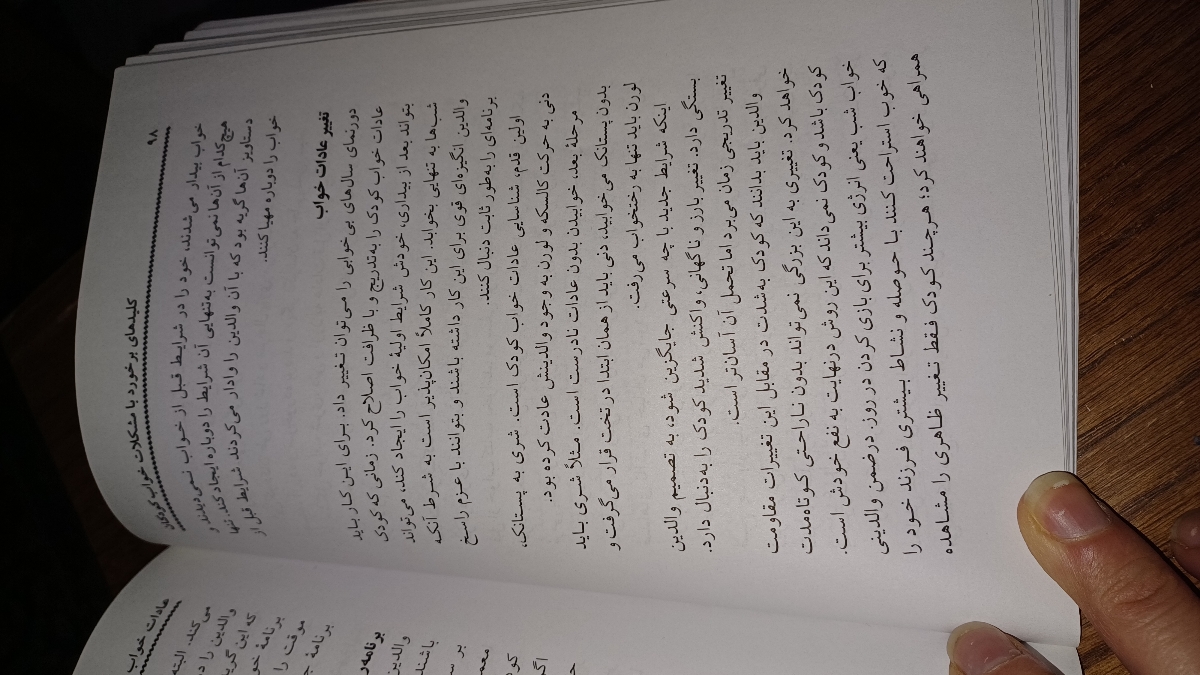 ۹۸
کلیدهای برخورد با مشکلات خواب کودکان
خواب بیدار می‌شدند، خود را در شرایط قبل از خواب نمی‌دیدند و
هیچ‌کدام از آن‌ها نمی‌توانست به‌تنهایی آن شرایط را دوباره ایجاد کند. تنها
دستاویز آن‌ها گریه بود که با آن والدین را وادار می‌کردند شرایط قبل از
خواب را دوباره مهیا کنند.
تغییر عادات خواب
دورنمای سال‌های بی‌خوابی را می‌توان تغییر داد. برای این کار باید
عادات خواب کودک را به‌تدریج و با ظرافت اصلاح کرد. زمانی که کودک
بتواند بعد از بیداری، خودش شرایط اولیهٔ خواب را ایجاد کند، می‌تواند
شب‌ها به تنهایی بخوابد. این کار کاملاً امکان‌پذیر است به شرط آنکه
والدین انگیزه‌ای قوی برای این کار داشته باشند و بتوانند با عزم راسخ
برنامه‌ای را به‌طور ثابت دنبال کنند.
اولین قدم، شناسایی عادات خواب کودک است. شری به پستانک،
دنی به حرکت کالسکه و لورن به وجود والدینش عادت کرده بود.
مرحلهٔ بعد، خوابیدن بدون عادات نادرست است. مثلاً شری باید
بدون پستانک می‌خوابید، دنی باید از همان ابتدا در تخت قرار می‌گرفت و
لورن باید تنها به رختخواب می‌رفت.
اینکه شرایط جدید با چه سرعتی جایگزین شود، به تصمیم والدین
بستگی دارد. تغییر بارز و ناگهانی، واکنش شدید کودک را به‌دنبال دارد.
تغییر تدریجی زمان می‌برد اما تحمل آن آسان‌تر است.
والدین باید بدانند که کودک به‌شدت در مقابل این تغییرات مقاومت
خواهد کرد. تغییری به این بزرگی نمی‌تواند بدون ناراحتی کوتاه‌مدت
کودک باشد و کودک نمی‌داند که این روش درنهایت به نفع خودش است.
خواب شب یعنی انرژی بیشتر برای بازی کردن در روز. درضمن والدینی
که خوب استراحت کنند با حوصله و نشاط بیشتری فرزند خود را
همراهی خواهند کرد؛ هرچند کودک فقط تغییر ظاهری را مشاهده
عادات خواب
می‌کند. البته
والدین را
که این
برنامهٔ
موقت را
برنامهٔ
والدین
باشند
بر